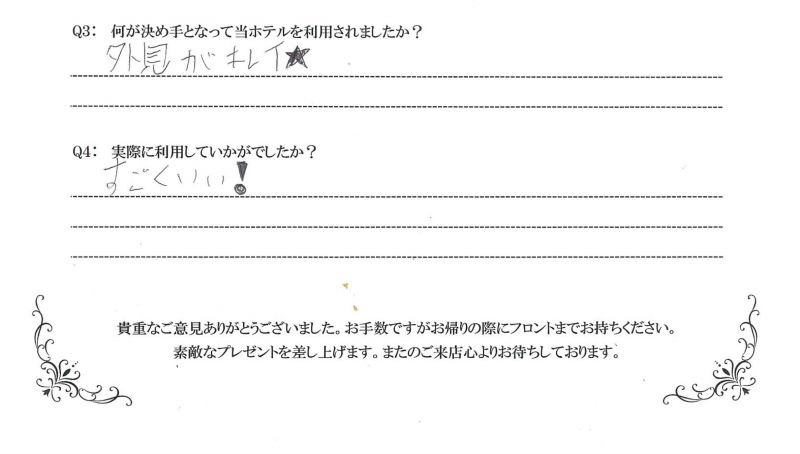 Q3： 何が決め手となって当ホテルを利用されましたか？
外見がキレイ★
Q4： 実際に利用していかがでしたか？
すごくいい！
貴重なご意見ありがとうございました。お手数ですがお帰りの際にフロントまでお持ちください。
素敵なプレゼントを差し上げます。またのご来店心よりお待ちしております。